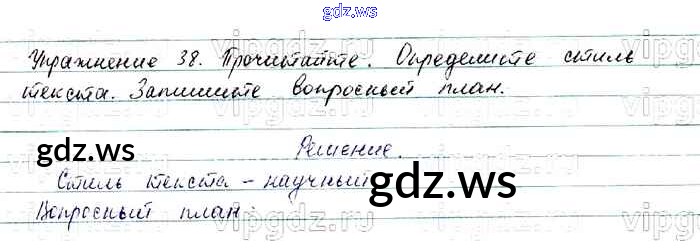 gdz.ws
Упражнение 38. Прочитайте. Определите стиль
текста. Запишите вопросный план.
Решение.
gdz.ws
gdz.ws
Стиль текста - научный
Вопросный план: